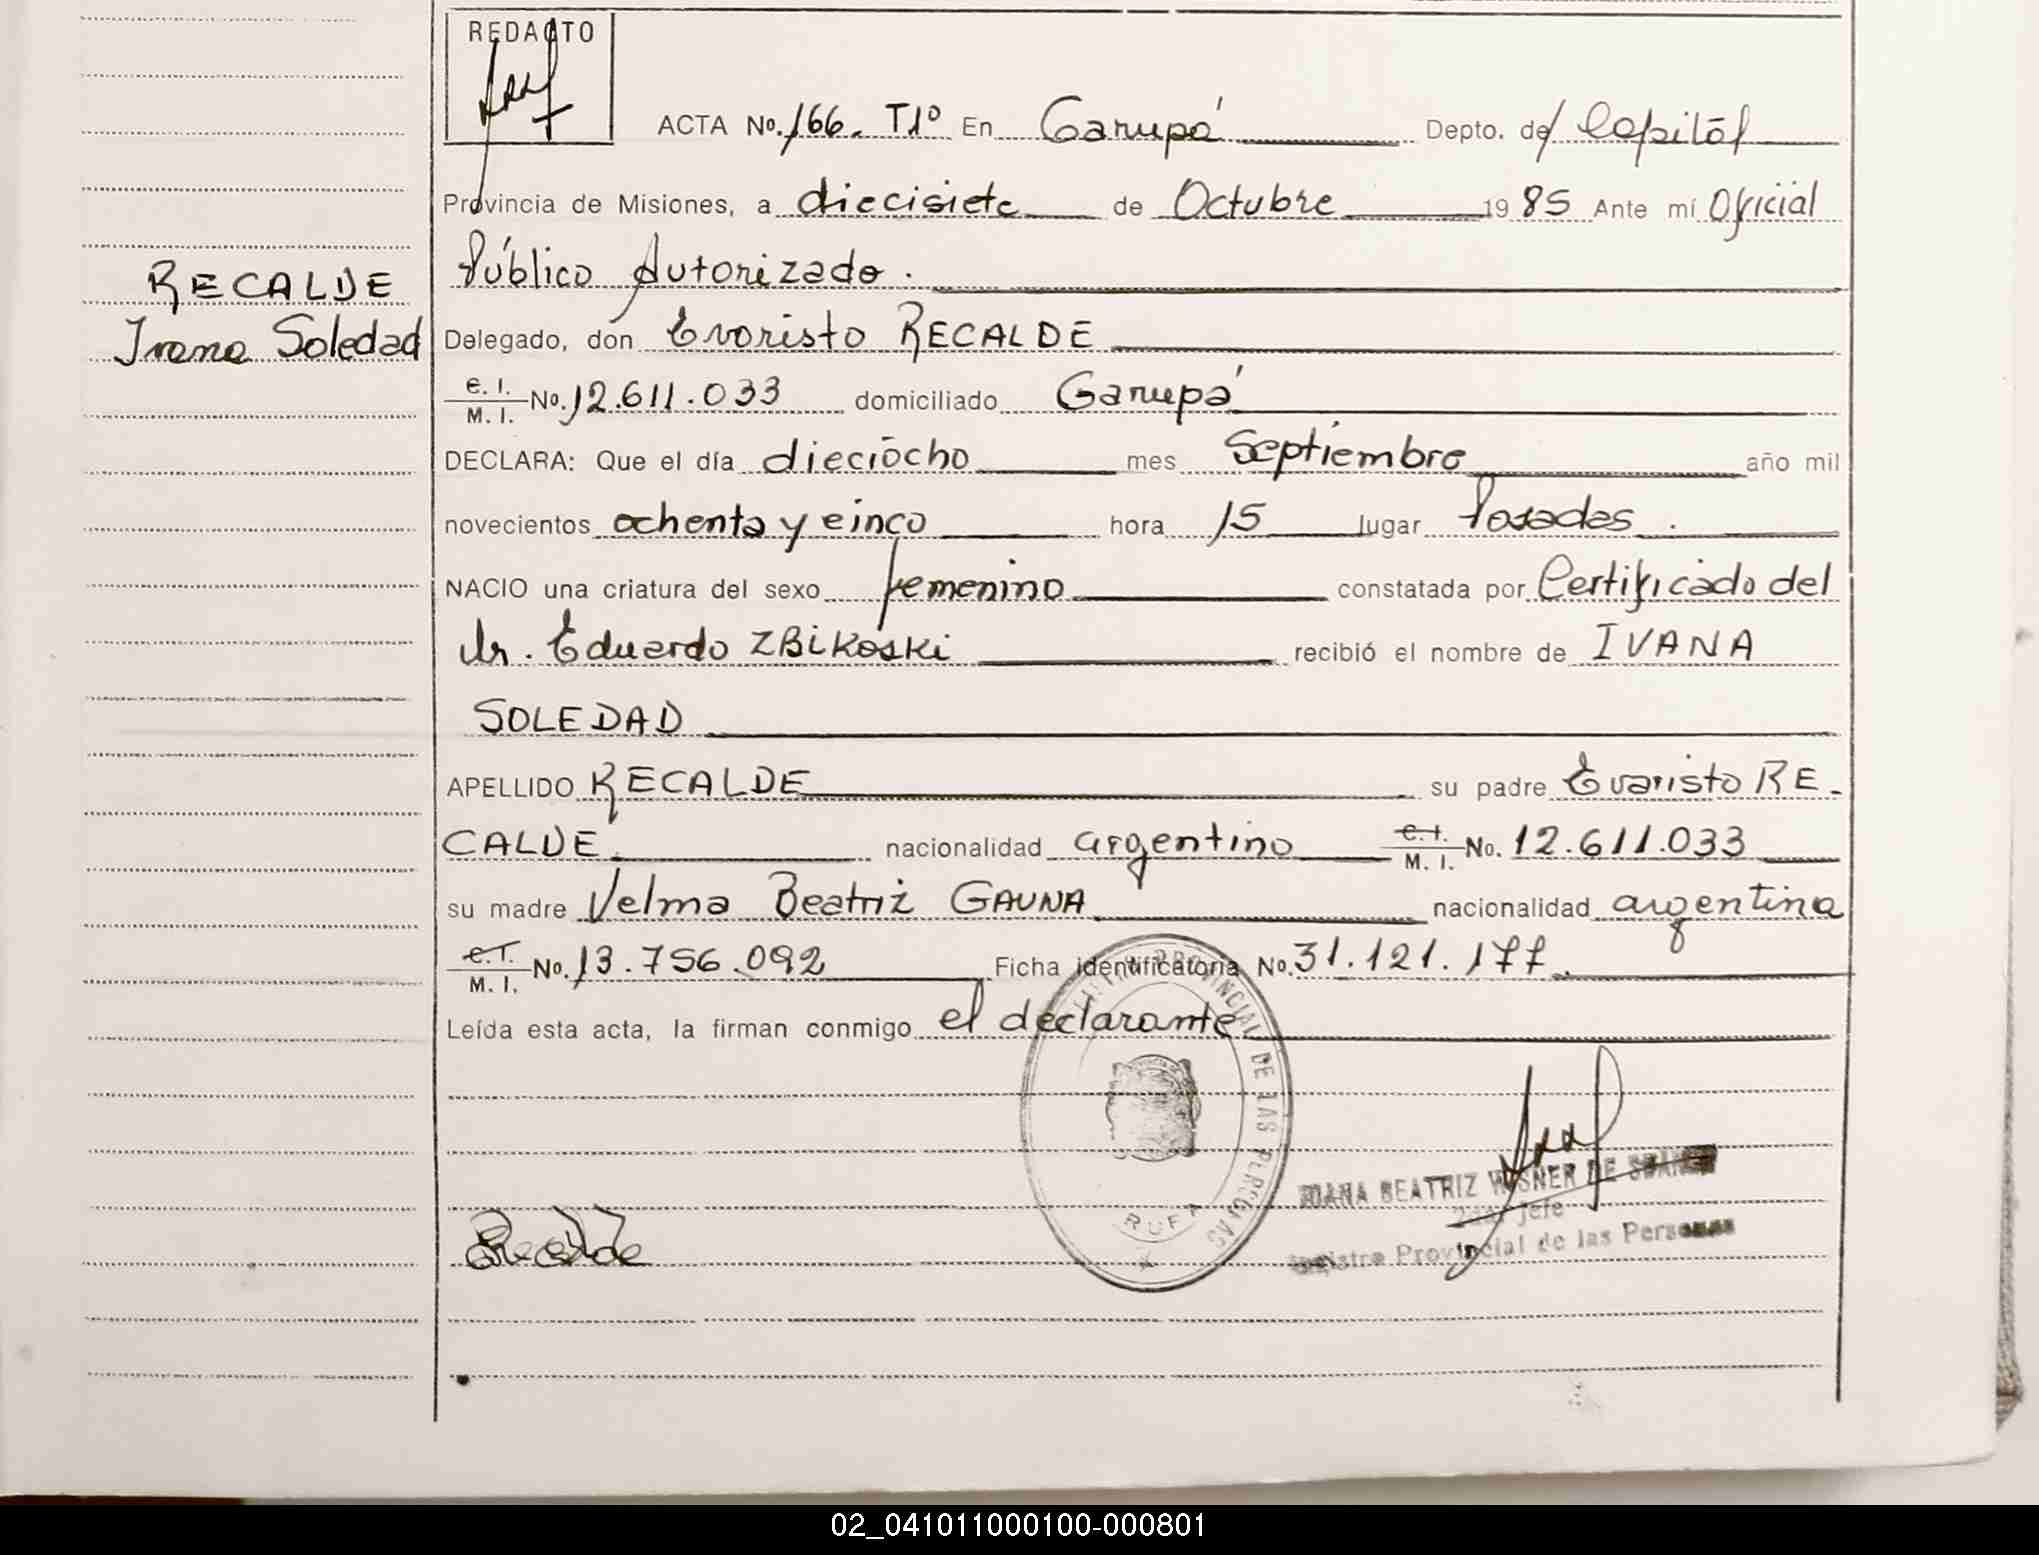 REDACTO
ACTA No. 166. T1º En Garupá Depto. de/ Capital
Provincia de Misiones, a diecisiete de Octubre 1985 Ante mí Oficial
Público Autorizado.
RECALDE
Ivana Soledad
Delegado, don Evaristo RECALDE
e. I.
M. I. No. 12.611.033 domiciliado Garupá
DECLARA: Que el día dieciocho mes Septiembre año mil
novecientos ochenta y cinco hora 15 lugar Posadas.
NACIO una criatura del sexo femenino constatada por Certificado del
Dr. Eduardo ZBiKosKi recibió el nombre de IVANA
SOLEDAD
APELLIDO RECALDE su padre Evaristo RE-
CALDE nacionalidad argentino e.I.
M. I. No. 12.611.033
su madre Velma Beatriz GAUNA nacionalidad argentina
e.I.
M. I. No. 13.756.092 Ficha identificatoria No. 31.121.177
Leída esta acta, la firman conmigo el declarante
PROVINCIAL DE LAS PERSONAS
Recalde
BEATRIZ DE
2da. Jefe
Registro Provincial de las Personas
02_041011000100-000801